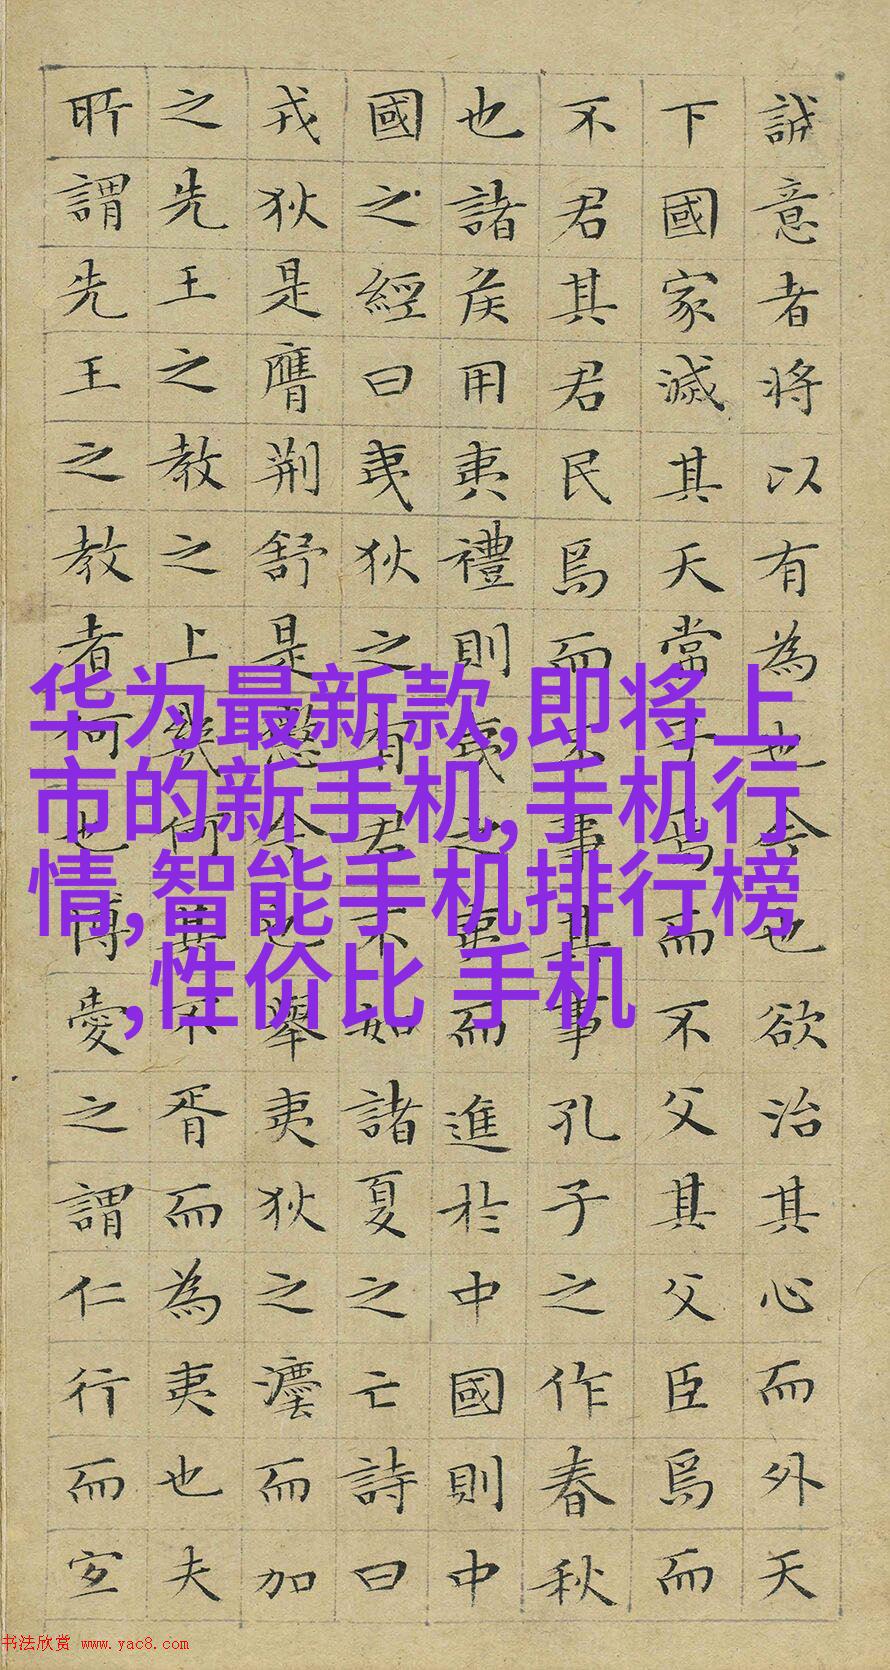 誠意者将以有為也今也欲治其心而外天
下國家滅其天常子焉而不父其父臣焉而
不君其君民焉而不事其事孔子之作春秋
也諸侯用夷禮則夷之夷而進於中國則中
國之經曰夷狄之有君不如諸夏之亡詩曰
戎狄是膺荊舒是懲今也舉夷狄之灋而加
之先王之教之上幾何其不胥而為夷也夫
所謂先王之教者何也博愛之謂仁行而宜
华为最新款,即将上
市的新手机,手机行
情,智能手机排行榜
,性价比 手机
书法欣赏 www.yac8.com